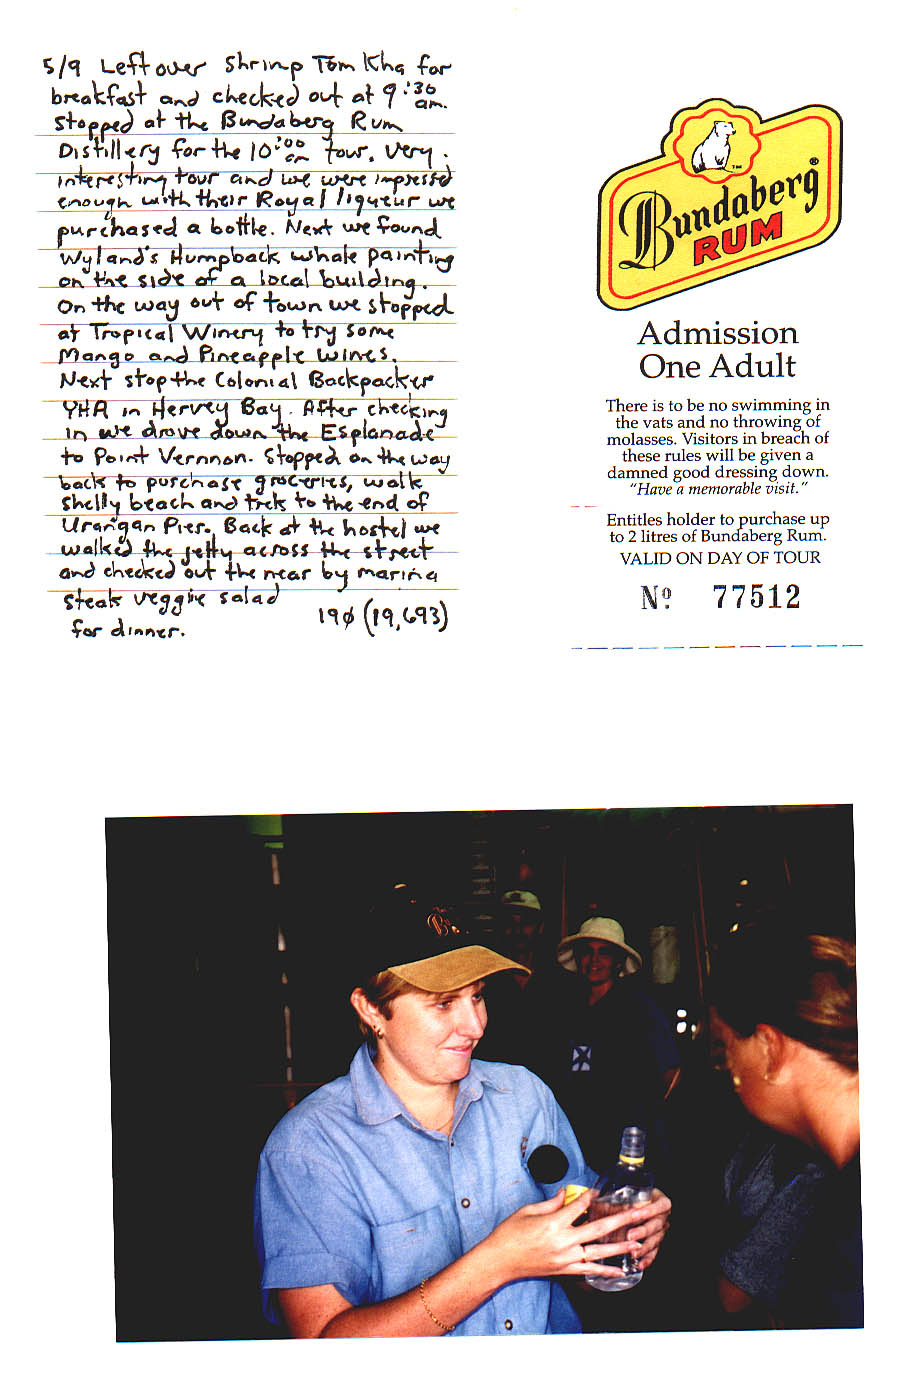 5/9 Leftover Shrimp Tom Kha for
breakfast and checked out at 9:30 am.
stopped at the Bundaberg Rum
Distillery for the 10:00 am tour. Very
interesting tour and we were impressed
enough with their Royal liqueur we
purchased a bottle. Next we found
Wyland's Humpback whale painting
on the side of a local building.
On the way out of town we stopped
at Tropical Winery to try some
Mango and Pineapple wines.
Next stop the Colonial Backpacker
YHA in Hervey Bay. After checking
in we drove down the Esplanade
to Point Vernnon. Stopped on the way
back to purchase groceries, walk
Shelly beach and trek to the end of
Urangan Pier. Back at the hostel we
walked the jetty across the street
and checked out the near by marina
steak veggie salad
for dinner.
190 (19,693)
Bundaberg®
RUM
™
Admission
One Adult
There is to be no swimming in
the vats and no throwing of
molasses. Visitors in breach of
these rules will be given a
damned good dressing down.
"Have a memorable visit."
Entitles holder to purchase up
to 2 litres of Bundaberg Rum.
VALID ON DAY OF TOUR
No 77512